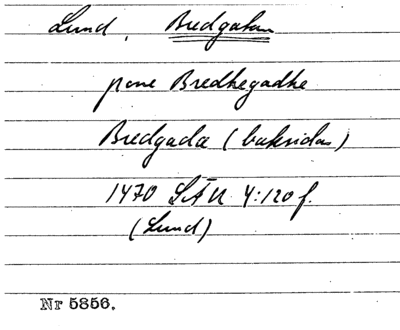 Lund, Bredgatan
pone Bredhegadhe
Bredgadæ (baksidan)
1470 SÄU 4:120 f.
(Lund)
Nr 5856.